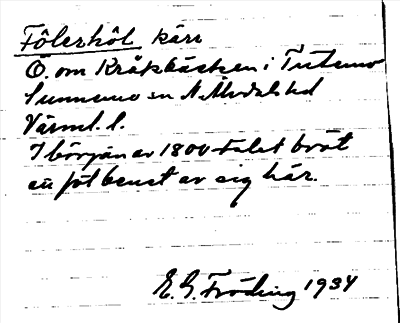 Fölerhöl kärr
Ö. om Kråkbäcken i Tutemo
Sunnemo sn N. Älvdals hd
Värml. l.
I början av 1800-talet bröt
en föl benet av sig här.
E. G. Fröding 1934